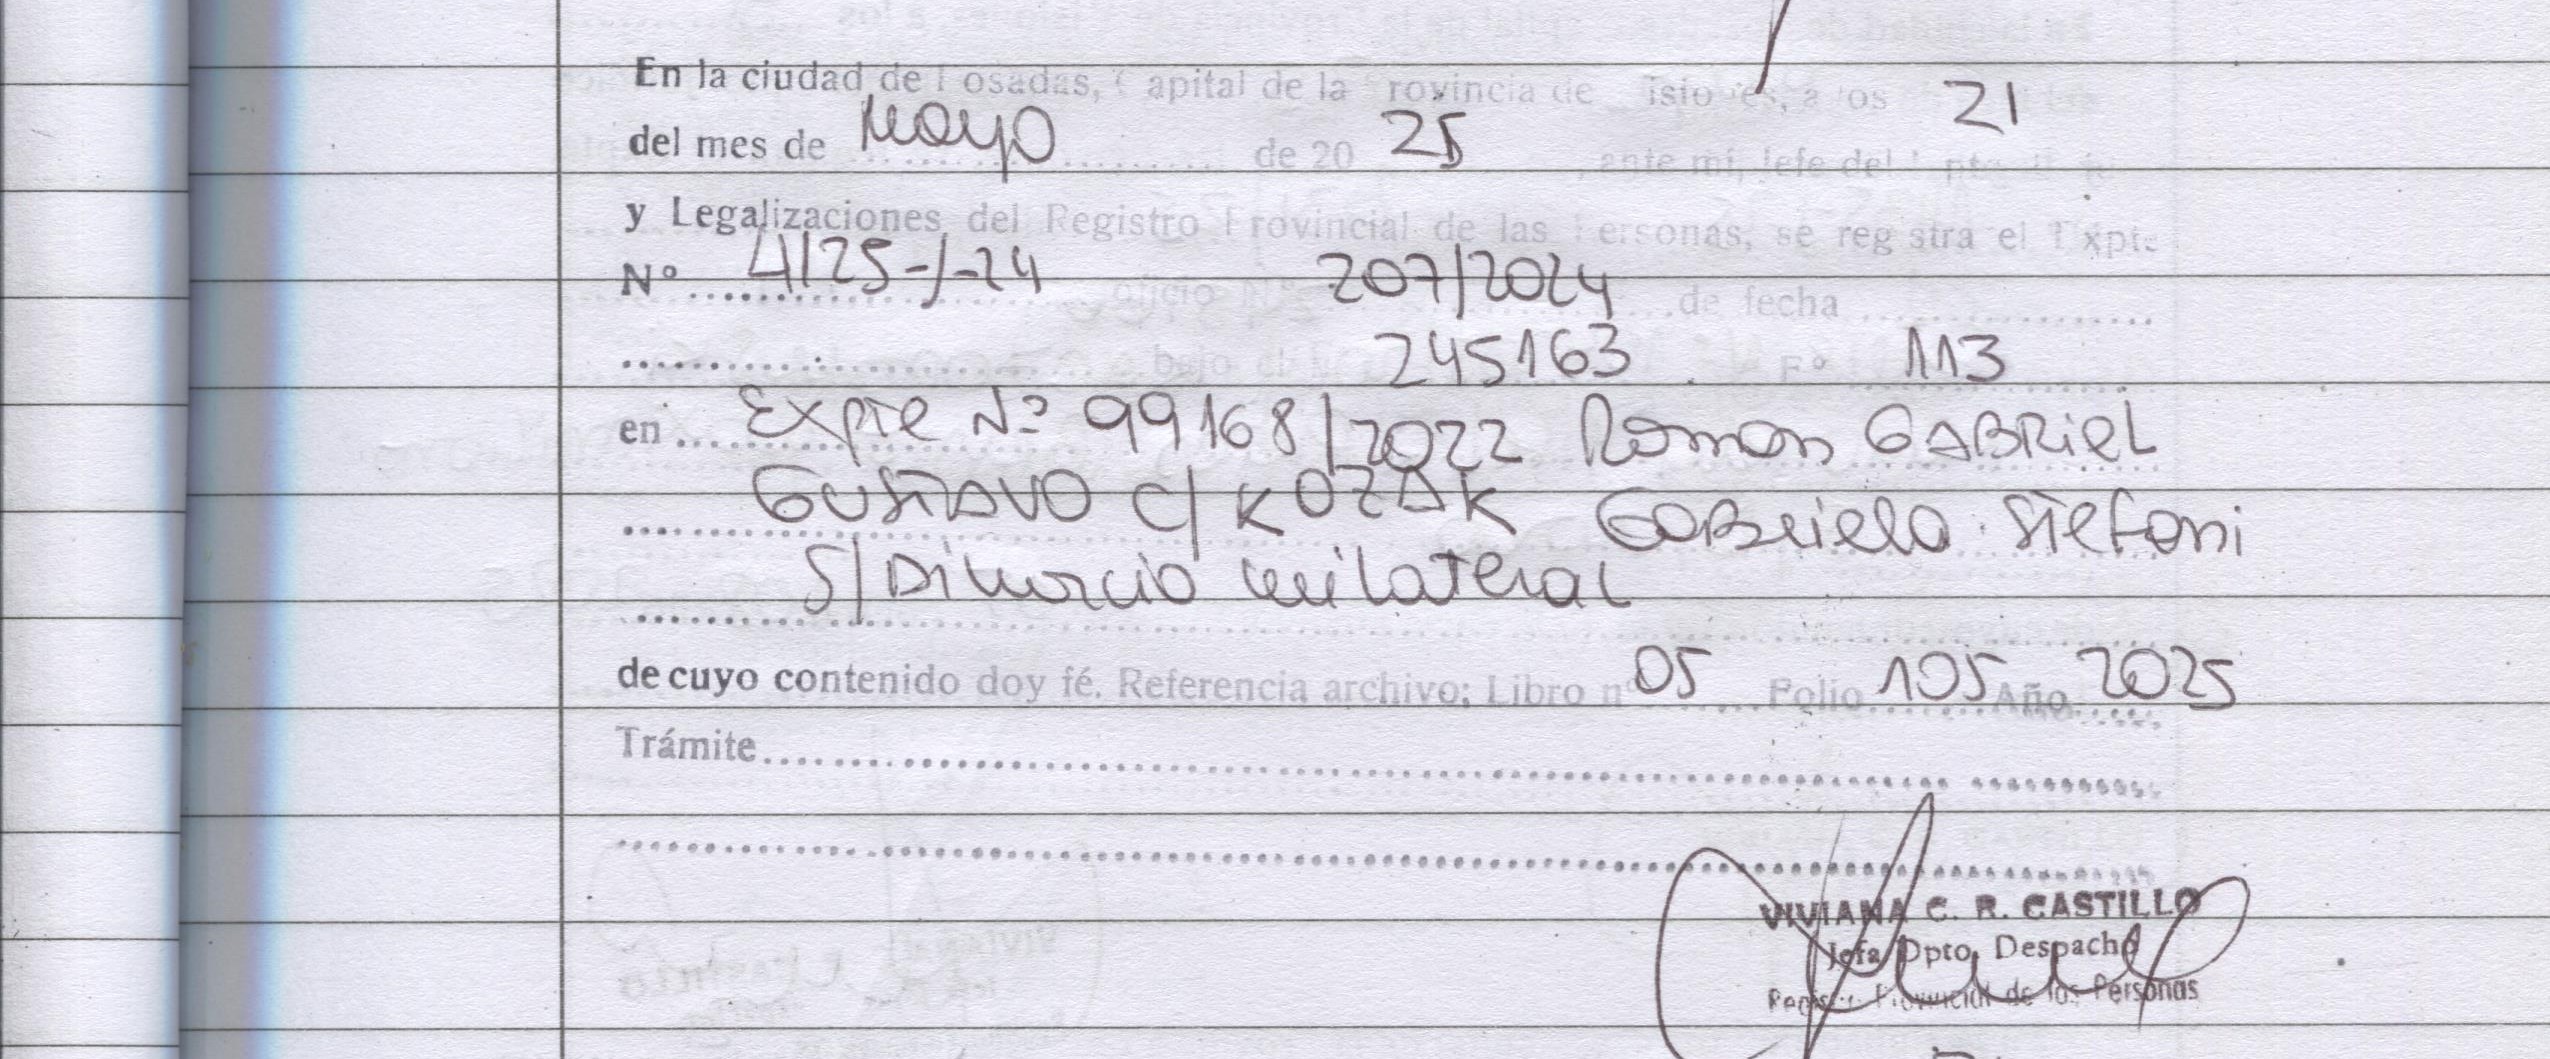 En la ciudad de Posadas, Capital de la Provincia de Misiones, a los 21
del mes de Mayo de 20 25, ante mí, Jefe del Dpto.
y Legalizaciones del Registro Provincial de las Personas, se registra el Expte
Nº 4125-J-24 oficio Nº 207/2024 de fecha
bajo el Nº 245163 Fº 113
en Expte Nº 99168/2022 Roman GABRIEL
GUSTAVO C/ KOZAK Gabriela Stefani
S/ Divorcio unilateral
de cuyo contenido doy fé. Referencia archivo: Libro nº 05 Folio 105 Año 2025
Trámite
VIVIANA C. R. CASTILLO
Jefa Dpto. Despacho
Registro Provincial de las Personas